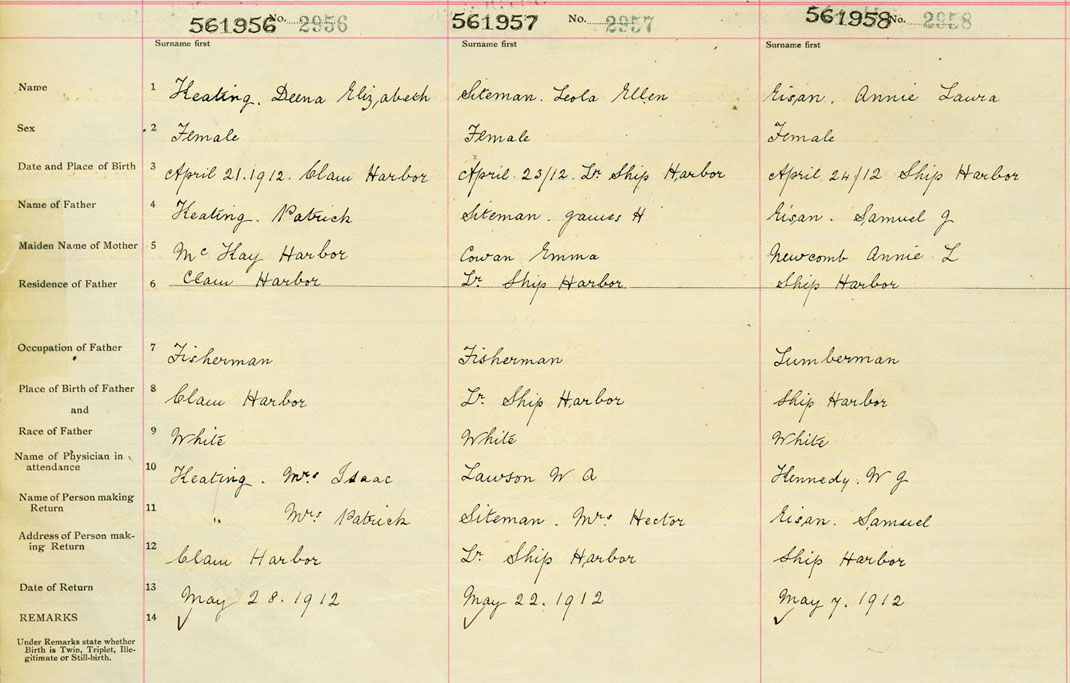 561956 No. 2956 561957 No. 2957 561958 No. 2958
Surname first Surname first Surname first
Name 1 Keating. Deena Elizabeth Siteman. Leola Ellen Eisan. Annie Laura
Sex 2 Female Female Female
Date and Place of Birth 3 April 21.1912. Clam Harbor April 23/12. Lr Ship Harbor April 24/12 Ship Harbor
Name of Father 4 Keating. Patrick Siteman. James H Eisan. Samuel G
Maiden Name of Mother 5 Mc Kay Harbor Cowan Emma Newcomb Annie L
Residence of Father 6 Clam Harbor Lr Ship Harbor Ship Harbor
Occupation of Father 7 Fisherman Fisherman Lumberman
Place of Birth of Father 8 Clam Harbor Lr Ship Harbor Ship Harbor
and
Race of Father 9 White White White
Name of Physician in
attendance 10 Keating. Mrs Isaac Lawson W A Kennedy. W J
Name of Person making
Return 11 " Mrs Patrick Siteman. Mrs Hector Eisan. Samuel
Address of Person mak-
ing Return 12 Clam Harbor Lr Ship Harbor Ship Harbor
Date of Return 13 May 28.1912 May 22.1912 May 7.1912
REMARKS 14 ✓ ✓ ✓
Under Remarks state whether
Birth is Twin, Triplet, Ille-
gitimate or Still-birth.